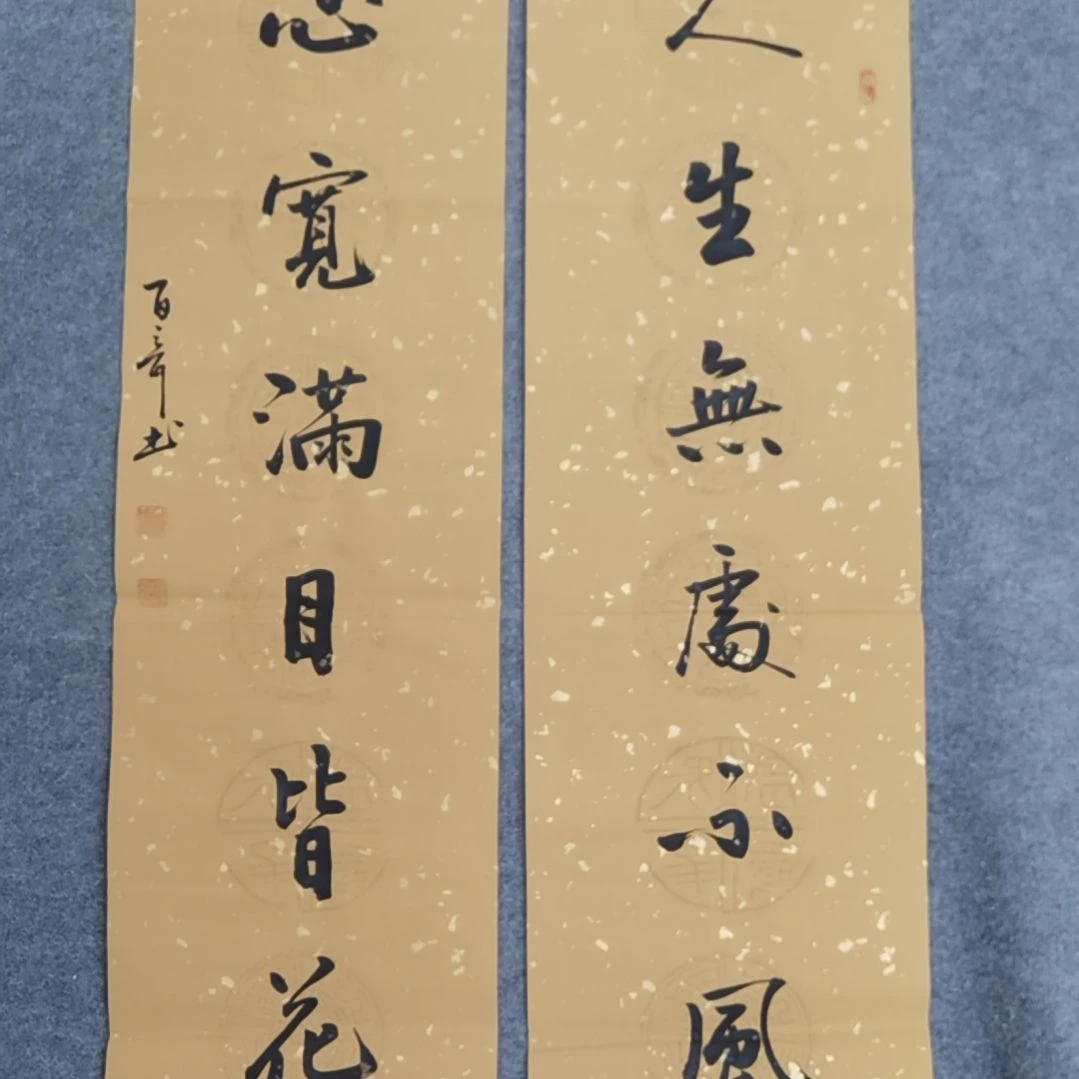 人生無處不風
心寬滿目皆花
百之齋书